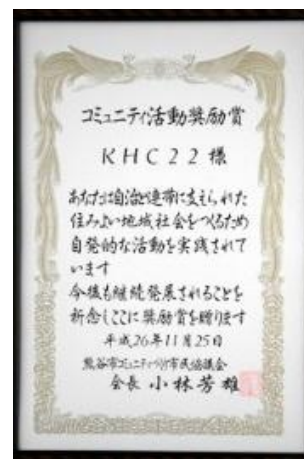 コミュニティ活動奨励賞
KHC22 様
あなたは自治と連帯に支えられた
住みよい地域社会をつくるため
自発的な活動を実践されて
います
今後も継続発展されることを
祈念しここに奨励賞を贈ります
平成26年11月25日
熊谷市コミュニティづくり市民協議会
会長 小林芳雄